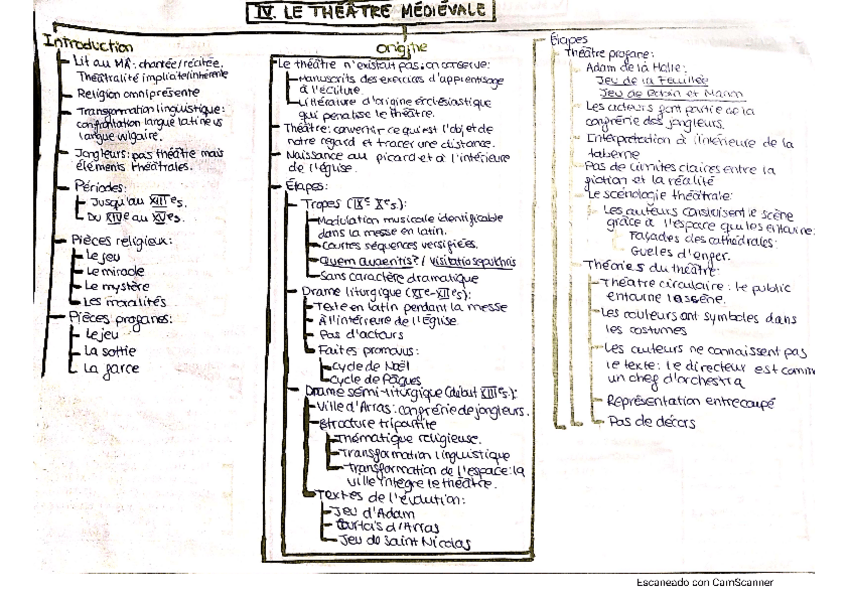 IV. LE THÉÂTRE MÉDIÉVALE
Introduction
Lit au MA: chantée/récitée.
Théâtralité implicite/inhérente
Religion omniprésente
Transformation linguistique:
confrontation langue latine vs
langue vulgaire.
Jongleurs: pas théâtre mais
éléments théâtrales.
Périodes:
Jusqu'au XIIIe s.
Du XIVe au XVe s.
Pièces religieux:
Le jeu
Le miracle
Le mystère
Les moralités
Pièces profanes:
Le jeu
La sottie
La farce
Origine
Le théâtre n'existait pas, on conserve:
Manuscrits des exercices d'apprentisage
à l'éciture.
Litterature d'origine ecclésiastique
qui penalise le théâtre.
Théâtre: convertir ce qui est l'objet de
notre regard et tracer une distance.
Naissance au picard et à l'intérieure
de l'église.
Étapes:
Tropes (IXe Xe s.):
Modulation musicale identificable
dans la messe en latin.
Courtes séquences versifiées.
Quem quaeritis? / Visitatio sepulchris
Sans caractère dramatique
Drame liturgique (XIe-XIIe s):
Texte en latin pendant la messe
À l'intérreure de l'Église
Pas d'acteurs
Faites promovus:
Cycle de Noël
Cycle de Pâques
Drame sémi-liturgique (début XIIIe s):
Ville d'Arras: confrérie de jongleurs.
Structure tripartite
Thématique religieuse.
Transformation linguistique
Transformation de l'espace: la
ville intègre le théâtre.
Textes de l'évolution:
Jeu d'Adam
Courtois d'Arras
Jeu de Saint Nicolas
Étapes
Théâtre profane:
Adam de la Halle:
Jeu de la Feuillée
Jeu de Robin et Marion
Les acteurs font partie de la
confrérie des jongleurs.
Interprétation à l'intérieure de la
taberne
Pas de limites claires entre la
fiction et la réalité
Le scénologie théâtrale:
Les auteurs construisent le scène
grâce à l'espace qui les entoure:
Façades des cathédrales
Gueles d'enfer.
Théories du théâtre:
Théâtre circulaire: le public
entoure la scène.
Les couleurs ont symboles dans
les costumes
Les auteurs ne connaissent pas
le texte: le directeur est comm
un chef d'orchestra
Représentation entrecoupé
Pas de décors
Escaneado con CamScanner